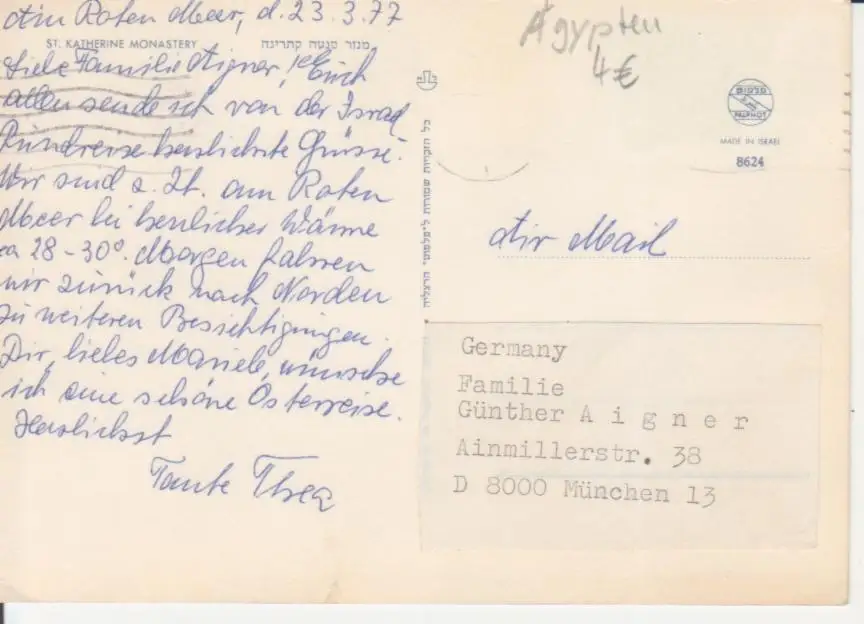 Am Roten Meer, d. 23.3.77
ST. KATHERINE MONASTERY מנזר סנטה קתרינה
Liebe Familie Aigner! Euch
allen sende ich von der Israel
Rundreise herzlichste Grüsse.
Wir sind z. Zt. am Roten
Meer bei herrlicher Wärme
ca 28-30°. Morgen fahren
wir zurück nach Norden
zu weiteren Besichtigungen.
Dir, liebes Mariele, wünsche
ich eine schöne Osterreise.
Herzlichst
Tante Thea
Ägypten
4€
כל הזכויות שמורות לפלפוט, הרצליה
פלפוט
PALPHOT
MADE IN ISRAEL
8624
Air Mail
Germany
Familie
Günther A i g n e r
Ainmillerstr. 38
D 8000 München 13